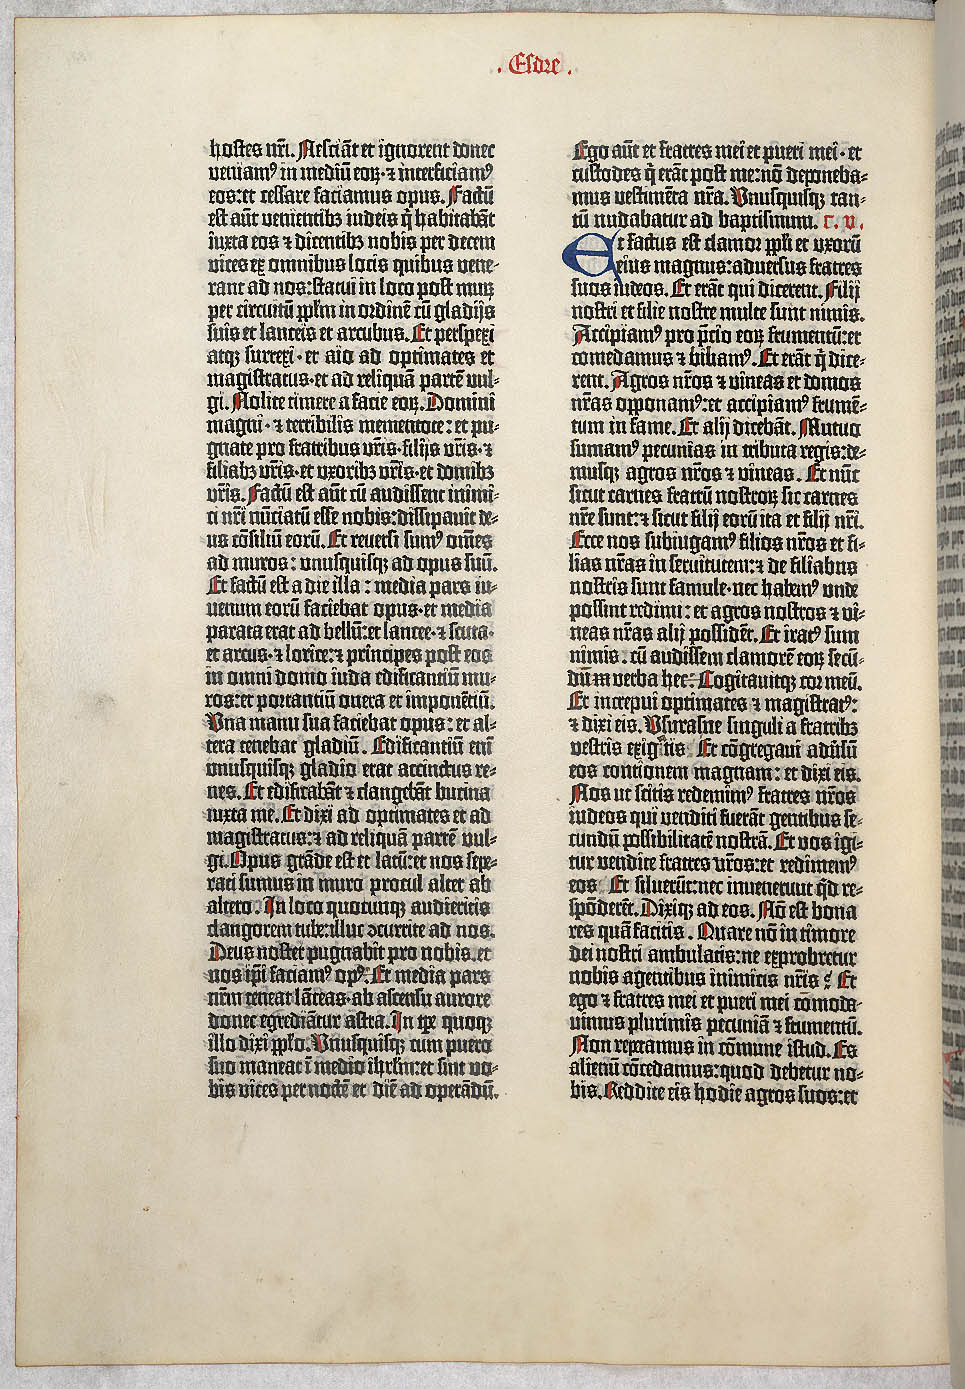 . Esdre .
hostes nr̄i. Nesciāt et ignorent donec
veniamꝰ in mediū eoꝝ · ⁊ interficiamꝰ
eos: et cessare faciamus opus. Factū
est aūt venientibꝫ iudeis q̄ habitabāt
iuxta eos ⁊ dicentibꝫ nobis per decem
vices ex omnibus locis quibus vene-
rant ad nos: statui in loco post muꝝ
per circuitū pp̄lm in ordinē cū gladijs
suis et lanceis et arcubus. Et perspexi
atqꝫ surrexi · et aio ad optimates et
magistratus · et ad reliquā partē vul-
gi. Nolite timere a facie eoꝝ. Domini
magni · ⁊ terribilis mementote: et pu-
gnate pro fratribus vr̄is · filijs vr̄is · ⁊
filiabꝫ vr̄is · et vxoribꝫ vr̄is · et domibꝫ
vr̄is. Factū est aūt cū audissent inimi-
ci nr̄i nūciatū esse nobis: dissipauit de-
us cōsiliū eorū. Et reuersi sumꝰ om̄es
ad muros: vnusquisqꝫ ad opus suū.
Et factū est a die illa: media pars iu-
uenum eorū faciebat opus · et media
parata erat ad bellū: et lancee · ⁊ scuta ·
et arcus · ⁊ lorice: ⁊ principes post eos
in omni domo iuda edificantiū mu-
ros: et portantiū onera et imponētiū.
Vna manu sua faciebat opus: et al-
tera tenebat gladiū. Edificantiū eni
vnusquisqꝫ gladio erat accinctus re-
nes. Et edificabāt ⁊ clangebāt bucina
iuxta me. Et dixi ad optimates et ad
magistratus: ⁊ ad reliquā partē vul-
gi. Opus grāde est et latū: et nos sepe-
rati sumus in muro procul alter ab
altero. In loco quocunqꝫ audieritis
clangorem tube: illuc ↄcurrite ad nos.
Deus noster pugnabit pro nobis. et
nos ip̄i faciamꝰ opꝰ. Et media pars
nr̄m teneat lāceas · ab ascensu aurore
donec egrediātur astra. In tp̄e quoqꝫ
illo dixi pp̄lo. Vnusquisqꝫ cum puero
suo maneat ī medio ihrlm̄: et sint vo-
bis vices per noctē et diē ad operādū.
Ego aūt et fratres mei et pueri mei · et
custodes q̄ erāt post me: nō deponeba-
mus vestimēta nr̄a. Vnusquisqꝫ tan-
tū nudabatur ad baptismum. c. v.
Et factus est clamor pp̄li et vxorū
eius magnus: aduersus fratres
suos iudeos. Et erāt qui dicerent. Filij
nostri et filie nostre multe sunt nimis.
Accipiamꝰ pro p̄cio eoꝝ frumentū: et
comedamus ⁊ bibamꝰ. Et erāt q̄ dice-
rent. Agros nr̄os ⁊ vineas et domos
nr̄as opponamꝰ: et accipiamꝰ frumē-
tum in fame. Et alij dicebāt. Mutuo
sumamꝰ pecunias in tributa regis: de-
musqꝫ agros nr̄os ⁊ vineas. Et nūc
sicut carnes fratrū nostroꝝ sic carnes
nr̄e sunt: ⁊ sicut filij eorū ita et filij nr̄i.
Ecce nos subiugamꝰ filios nr̄os et fi-
lias nr̄as in seruitutem: ⁊ de filiabus
nostris sunt famule · nec habemꝰ vnde
possint redimi: et agros nostros ⁊ vi-
neas nr̄as alij possidēt. Et iratꝰ sum
nimis · cū audissem clamorē eoꝝ secū-
dū verba hec: Cogitauitqꝫ cor meū.
Et increpui optimates ⁊ magistratꝰ:
⁊ dixi eis. Vsurasne singuli a fratribꝫ
vestris exigitis. Et cōgregaui aduersū
eos contionem magnam: et dixi eis.
Nos ut scitis redemimꝰ fratres nr̄os
iudeos qui venditi fuerāt gentibus se-
cundū possibilitatē nostrā. Et vos igi-
tur vendite fratres vr̄os: et redimemꝰ
eos. Et siluerūt: nec inuenerunt q̄d re-
spōderēt. Dixiqꝫ ad eos. Nō est bona
res quā facitis. Quare nō in timore
dei nostri ambulatis: ne exprobretur
nobis a gentibus inimicis nr̄is? Et
ego ⁊ fratres mei et pueri mei cōmoda-
uimus plurimis pecuniā ⁊ frumentū.
Non repetamus in cōmune istud. Es
alienū cōcedamus: quod debetur no-
bis. Reddite eis hodie agros suos: et